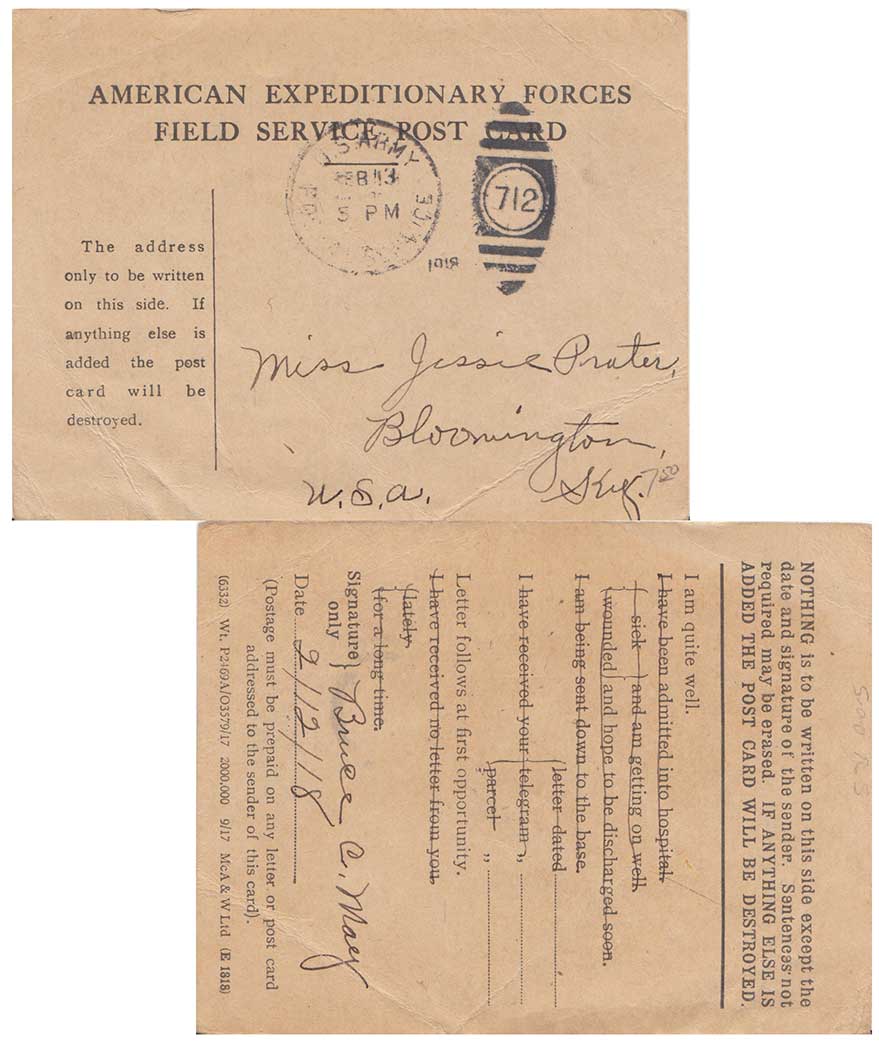 AMERICAN EXPEDITIONARY FORCES
FIELD SERVICE POST CARD
U.S. ARMY
FEB 13
5 PM
1918
712
The address
only to be written
on this side. If
anything else is
added the post
card will be
destroyed.
Miss Jessie Prater,
Bloomington,
U.S.A. Ky.
7 50
NOTHING is to be written on this side except the
date and signature of the sender. Sentences not
required may be erased. IF ANYTHING ELSE IS
ADDED THE POST CARD WILL BE DESTROYED.
I am quite well.
I have been admitted into hospital.
{ sick } and am getting on well
{ wounded } and hope to be discharged soon.
I am being sent down to the base.
{ letter dated
I have received your { telegram ,,
{ parcel ,,
Letter follows at first opportunity.
I have received no letter from you,
{ lately
{ for a long time.
Signature }
only } Bruce C. Macy
Date 2/12/18
(Postage must be prepaid on any letter or post card
addressed to the sender of this card).
(6332) Wt. P2469A/O3579/17 2000,000 9/17 McA & W Ltd (E 1818)